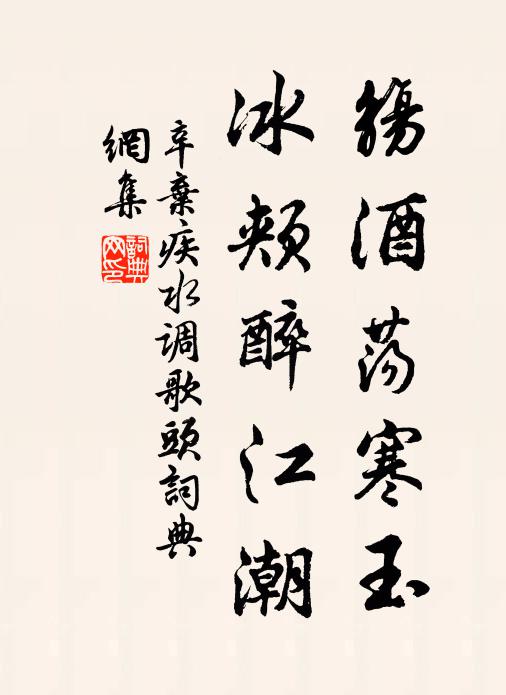 觴酒蕩寒玉
冰頰醉江潮
辛棄疾水调歌頭詞典
網集
詞典網印